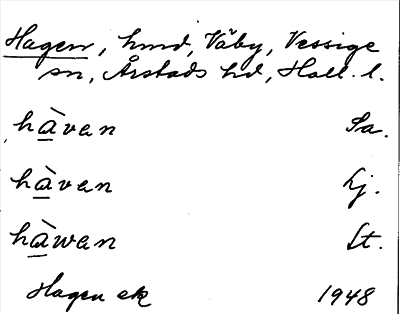 Hagen, hmd, Väby, Vessige
sn, Årstads hd, Hall. l.
hàvan Sa.
hàvan Lj.
hàwan St.
Hagen ek 1948